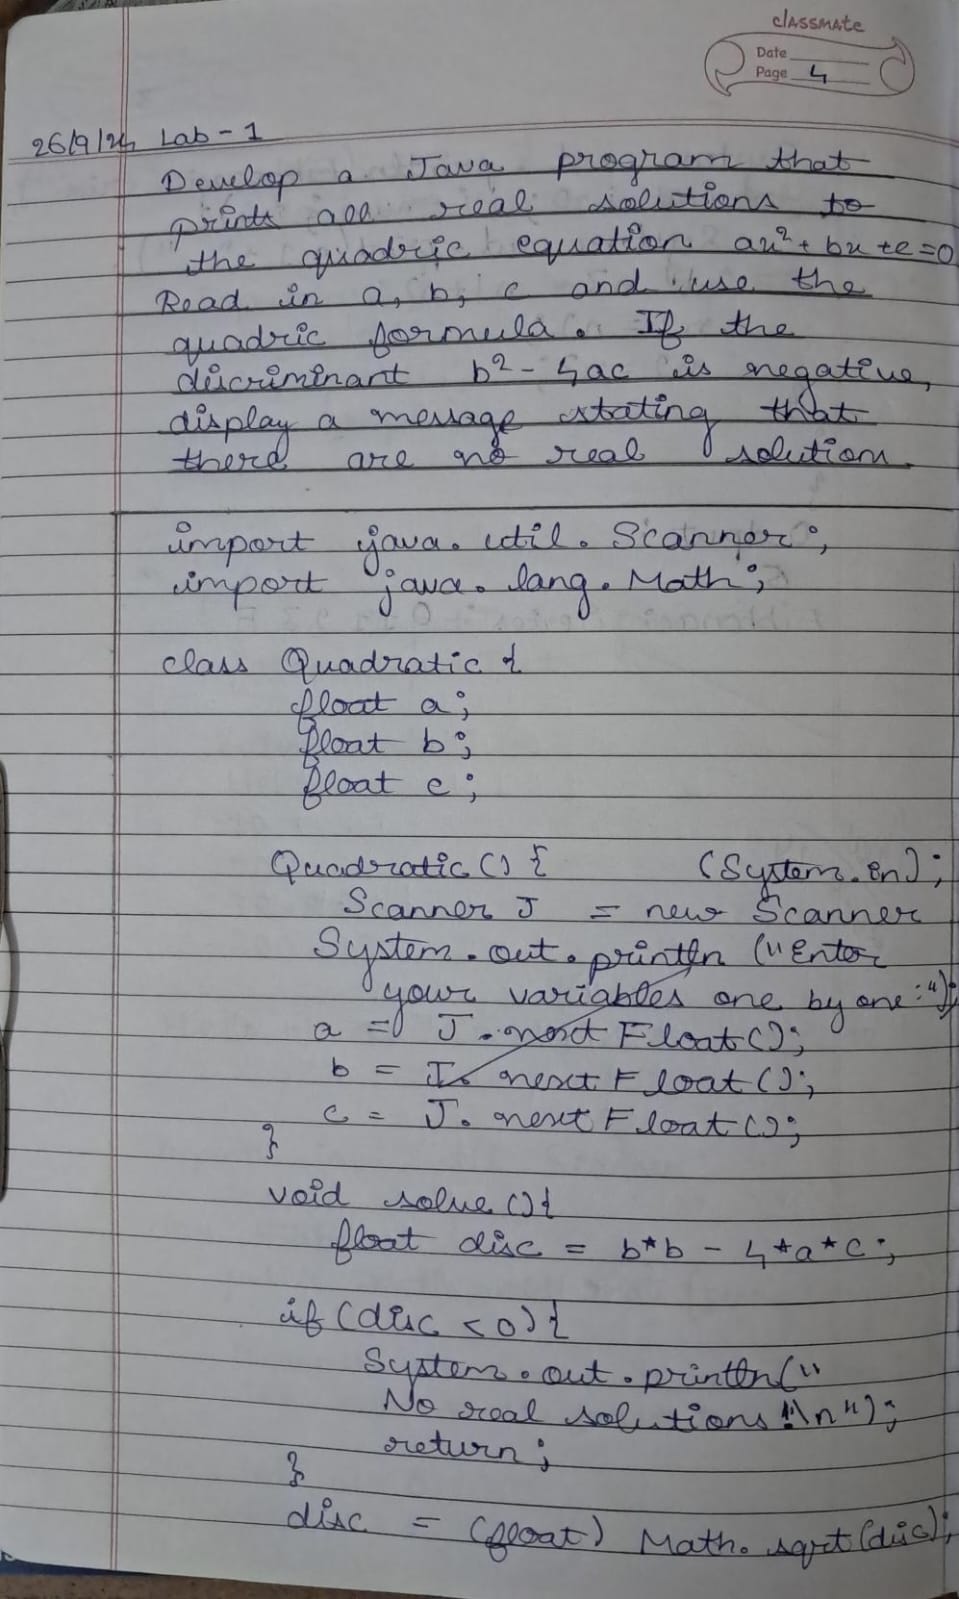 classmate
Date
Page 4
26/9/24 Lab - 1
Develop a Java program that
prints all real solutions to
the quadric equation ax²+bx+c=0
Read in a, b, c and use the
quadric formula. If the
discriminant b²-4ac is negative,
display a message stating that
there are no real solution.
import java.util.Scanner;
import java.lang.Math;
class Quadratic {
float a;
float b;
float c;
Quadratic() { (System.in);
Scanner J = new Scanner
System.out.println ("Enter
your variables one by one:");
a = J.nextFloat();
b = J.nextFloat();
c = J.nextFloat();
}
void solve(){
float disc = b*b - 4*a*c;
if (disc < 0) {
System.out.println("
No real solutions!\n");
return;
}
disc = (float) Math.sqrt(disc);